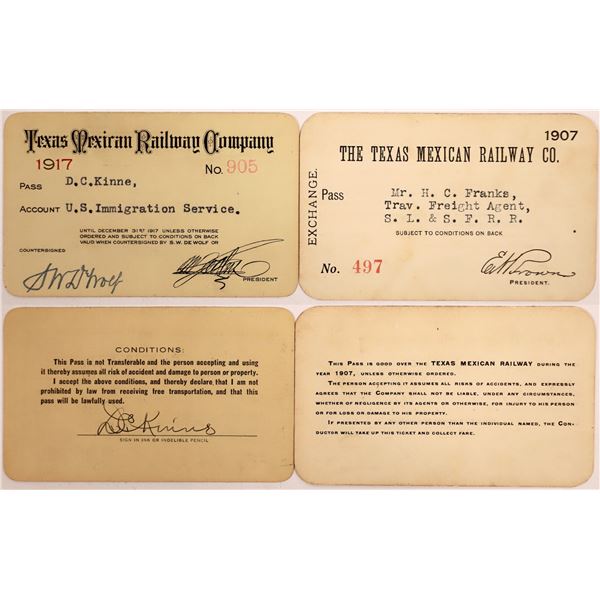 Texas Mexican Railway Company
1917 No. 905
PASS D.C.Kinne,
ACCOUNT U.S.Immigration Service.
UNTIL DECEMBER 31ST 1917 UNLESS OTHERWISE
ORDERED AND SUBJECT TO CONDITIONS ON BACK
VALID WHEN COUNTERSIGNED BY S.W. DE WOLF OR
COUNTERSIGNED
SW DeWolf
PRESIDENT
1907
THE TEXAS MEXICAN RAILWAY CO.
EXCHANGE
Pass Mr. H. C. Franks,
Trav. Freight Agent,
S. L. & S. F. R. R.
SUBJECT TO CONDITIONS ON BACK
No. 497
E Brown
PRESIDENT.
CONDITIONS:
This Pass is not Transferable and the person accepting and using
it thereby assumes all risk of accident and damage to person or property.
I accept the above conditions, and thereby declare that I am not
prohibited by law from receiving free transportation, and that this
pass will be lawfully used.
DC Kinne
SIGN IN INK OR INDELIBLE PENCIL
THIS PASS IS GOOD OVER THE TEXAS MEXICAN RAILWAY DURING THE
YEAR 1907, UNLESS OTHERWISE ORDERED.
THE PERSON ACCEPTING IT ASSUMES ALL RISKS OF ACCIDENTS, AND EXPRESSLY
AGREES THAT THE COMPANY SHALL NOT BE LIABLE, UNDER ANY CIRCUMSTANCES,
WHETHER OF NEGLIGENCE BY ITS AGENTS OR OTHERWISE, FOR INJURY TO HIS PERSON
OR FOR LOSS OR DAMAGE TO HIS PROPERTY.
IF PRESENTED BY ANY OTHER PERSON THAN THE INDIVIDUAL NAMED, THE CON-
DUCTOR WILL TAKE UP THIS TICKET AND COLLECT FARE.